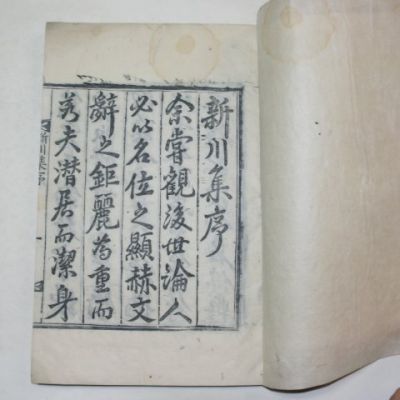 新川集序
余嘗觀後世論人
必以名位之顯赫文
辭之鉅麗為重而
若夫潛居而潔身
新川集序